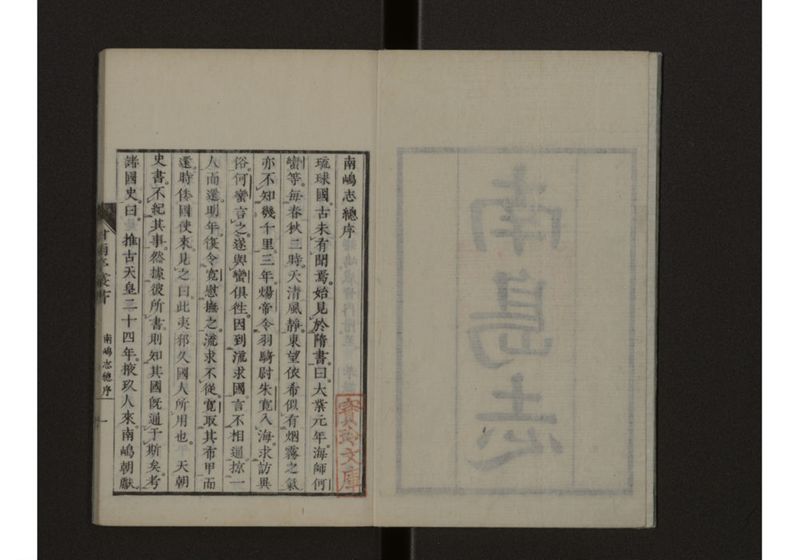 南島志
南嶋志總序
琉球國古未有聞焉始見於隋書曰大業元年海師何
蠻等每春秋二時天清風靜東望依希似有烟霧之氣
亦不知幾千里三年煬帝令羽騎尉朱寬入海求訪異
俗何蠻言之遂與蠻俱往因到流求國言不相通掠一
人而還明年復令寬慰撫之流求不從寬取其布甲而
還時倭國使來見之曰此夷邪久國人所用也 天朝
史書不紀其事然據彼所書則知其國既通于斯矣考
諸國史曰 推古天皇二十四年掖玖人來南嶋朝獻
甘雨亭叢書
南嶋志總序
一
寶玲文庫